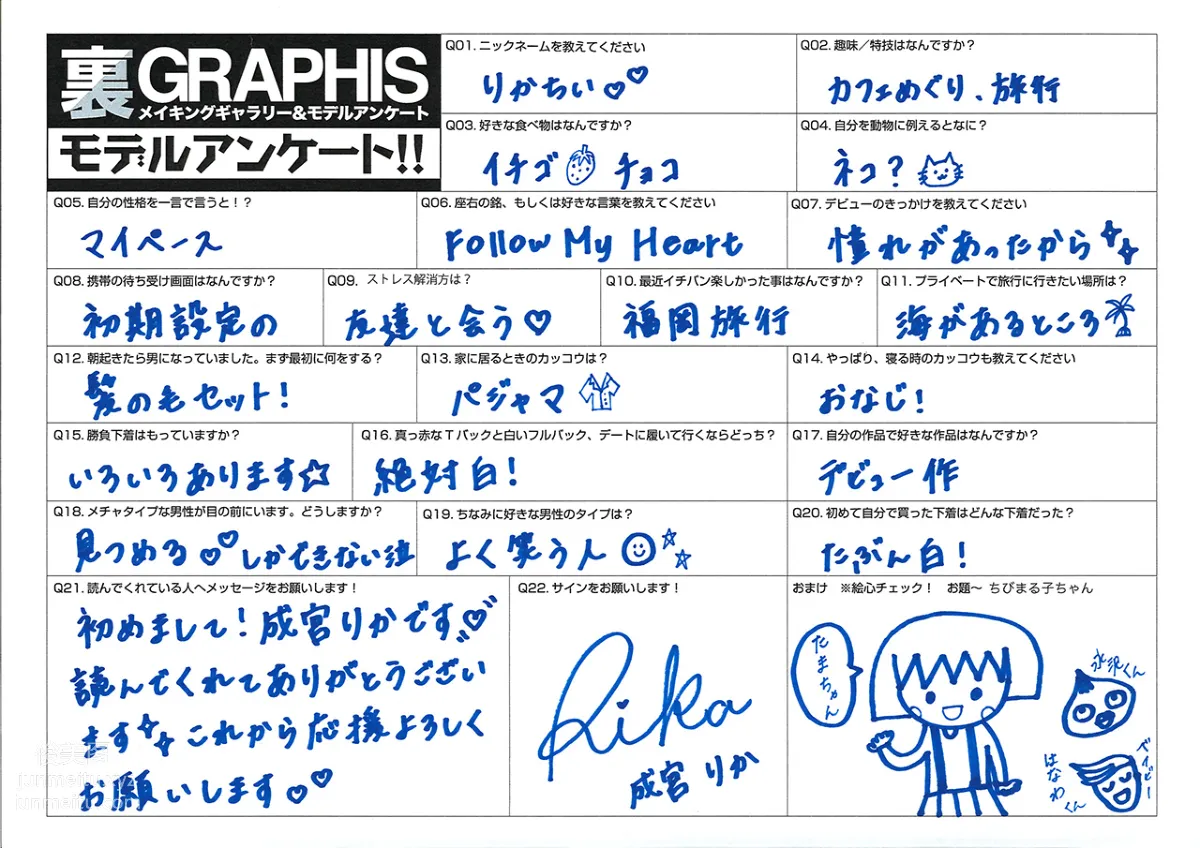 裏GRAPHIS
メイキングギャラリー&モデルアンケート
モデルアンケート!!
Q01. ニックネームを教えてください
りかちぃ♡♡
Q02. 趣味／特技はなんですか？
カフェめぐり、旅行
Q03. 好きな食べ物はなんですか？
イチゴ チョコ
Q04. 自分を動物に例えるとなに？
ネコ？
Q05. 自分の性格を一言で言うと！？
マイペース
Q06. 座右の銘、もしくは好きな言葉を教えてください
Follow My Heart
Q07. デビューのきっかけを教えてください
憧れがあったから
Q08. 携帯の待ち受け画面はなんですか？
初期設定の
Q09. ストレス解消方は？
友達と会う♡
Q10. 最近イチバン楽しかった事はなんですか？
福岡旅行
Q11. プライベートで旅行に行きたい場所は？
海があるところ
Q12. 朝起きたら男になっていました。まず最初に何をする？
髪の毛セット！
Q13. 家に居るときのカッコウは？
パジャマ
Q14. やっぱり、寝る時のカッコウも教えてください
おなじ！
Q15. 勝負下着はもっていますか？
いろいろあります☆
Q16. 真っ赤なTバックと白いフルバック、デートに履いて行くならどっち？
絶対白！
Q17. 自分の作品で好きな作品はなんですか？
デビュー作
Q18. メチャタイプな男性が目の前にいます。どうしますか？
見つめる♡♡しかできない泣
Q19. ちなみに好きな男性のタイプは？
よく笑う人
Q20. 初めて自分で買った下着はどんな下着だった？
たぶん白！
Q21. 読んでくれている人へメッセージをお願いします！
初めまして！成宮りかです♡
読んでくれてありがとうござい
ます これから応援よろしく
お願いします♡♡
Q22. サインをお願いします！
Rika
成宮りか
おまけ ※絵心チェック！ お題〜 ちびまる子ちゃん
たまちゃん
永沢くん
はなわくん
ベイビー
junmeitu.xyz
junmeitu.com